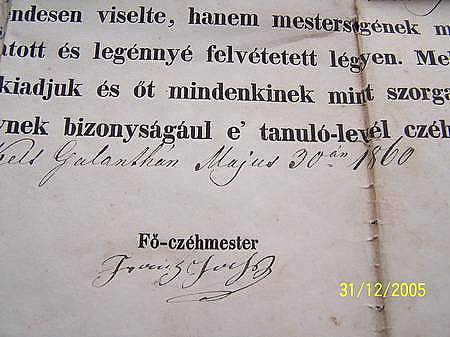 ndesen viselte, hanem mesterségének m
atott és legénnyé felvétetett légyen. Mel
kiadjuk és őt mindenkinek mint szorga
ynek bizonyságaul e' tanuló-levél czéh
Kels Galanthán Majus 30-án 1860
Fő-czéhmester
31/12/2005